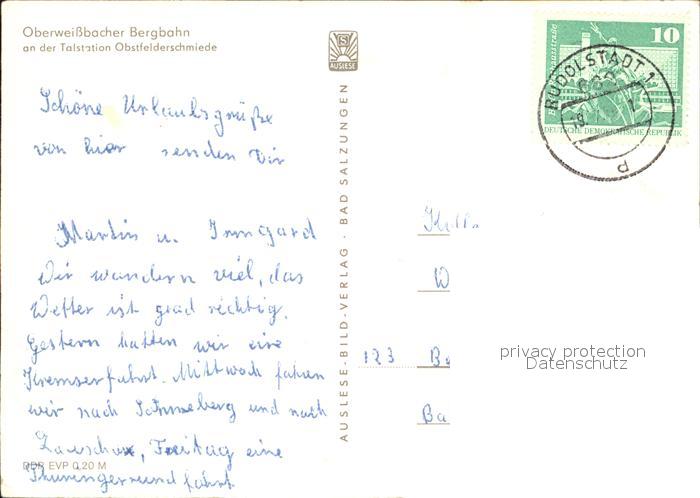 Oberweißbacher Bergbahn
an der Talstation Obstfelderschmiede
AUSLESE
Schöne Urlaubsgrüße
von hier senden Dir
Martin u. Irmgard
Wir wandern viel, das
Wetter ist grad richtig.
Gestern hatten wir eine
Kremserfahrt. Mittwoch fahren
wir nach Sonneberg und nach
Lauscha, Freitag eine
Thüringenrundfahrt
DDR EVP 0,20 M
AUSLESE-BILD-VERLAG · BAD SALZUNGEN
10
DEUTSCHE DEMOKRATISCHE REPUBLIK
RUDOLSTADT 1
W
123 Be
Ba
privacy protection
Datenschutz